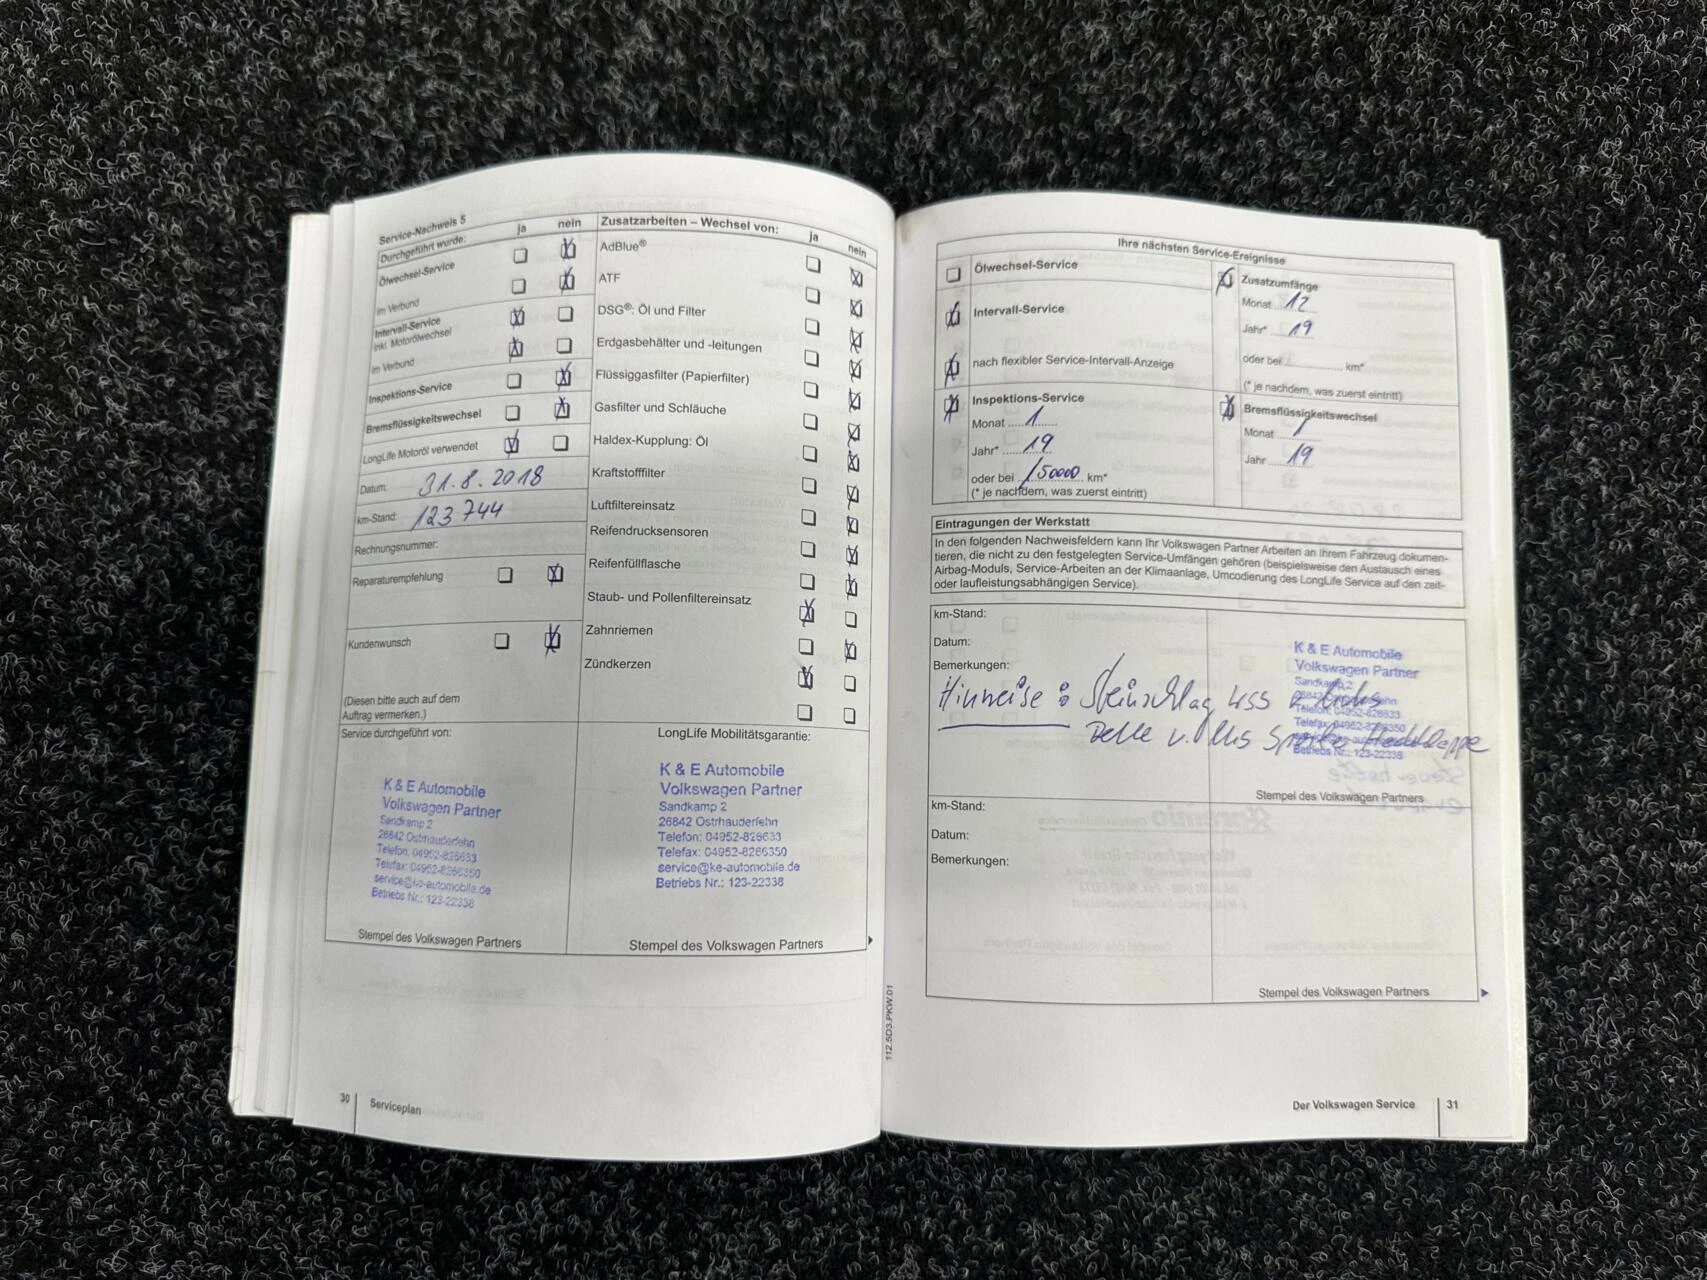 Service-Nachweis 5
Durchgeführt wurde: ja nein
Ölwechsel-Service
im Verbund
Intervall-Service
inkl. Motorölwechsel
im Verbund
Inspektions-Service
Bremsflüssigkeitswechsel
LongLife Motoröl verwendet
Datum: 31.8.2018
km-Stand: 123744
Rechnungsnummer:
Reparaturempfehlung
Kundenwunsch
(Diesen bitte auch auf dem
Auftrag vermerken.)
Zusatzarbeiten – Wechsel von: ja nein
AdBlue®
ATF
DSG®: Öl und Filter
Erdgasbehälter und -leitungen
Flüssiggasfilter (Papierfilter)
Gasfilter und Schläuche
Haldex-Kupplung: Öl
Kraftstofffilter
Luftfiltereinsatz
Reifendrucksensoren
Reifenfüllflasche
Staub- und Pollenfiltereinsatz
Zahnriemen
Zündkerzen
Service durchgeführt von:
K & E Automobile
Volkswagen Partner
Sandkamp 2
26842 Ostrhauderfehn
Telefon: 04952-826633
Telefax: 04952-8266350
service@ke-automobile.de
Betriebs Nr.: 123-22338
Stempel des Volkswagen Partners
LongLife Mobilitätsgarantie:
K & E Automobile
Volkswagen Partner
Sandkamp 2
26842 Ostrhauderfehn
Telefon: 04952-826633
Telefax: 04952-8266350
service@ke-automobile.de
Betriebs Nr.: 123-22338
Stempel des Volkswagen Partners
30 Serviceplan
112.5D3.PKW.01
Ihre nächsten Service-Ereignisse
Ölwechsel-Service
Intervall-Service
nach flexibler Service-Intervall-Anzeige
Inspektions-Service
Monat 1
Jahr* 19
oder bei 150000 km*
(* je nachdem, was zuerst eintritt)
Zusatzumfänge
Monat 12
Jahr* 19
oder bei km*
(* je nachdem, was zuerst eintritt)
Bremsflüssigkeitswechsel
Monat 1
Jahr 19
Eintragungen der Werkstatt
In den folgenden Nachweisfeldern kann Ihr Volkswagen Partner Arbeiten an Ihrem Fahrzeug dokumen-
tieren, die nicht zu den festgelegten Service-Umfängen gehören (beispielsweise den Austausch eines
Airbag-Moduls, Service-Arbeiten an der Klimaanlage, Umcodierung des LongLife Service auf den zeit-
oder laufleistungsabhängigen Service).
km-Stand:
Datum:
Bemerkungen:
Hinweise: Steinschlag WSS
Delle
K & E Automobile
Volkswagen Partner
Sandkamp 2
26842 Ostrhauderfehn
Telefon: 04952-826633
Telefax: 04952-8266350
Betriebs Nr.: 123-22338
Stempel des Volkswagen Partners
km-Stand:
Datum:
Bemerkungen:
Stempel des Volkswagen Partners
Der Volkswagen Service 31